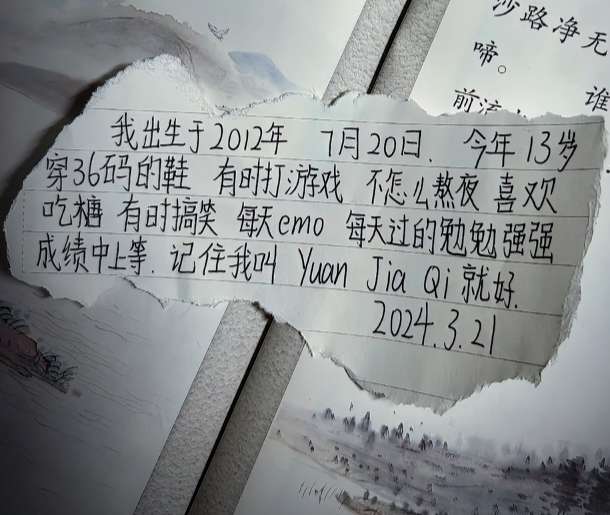 沙路净无
啼。
谁
前流
我出生于2012年 7月20日. 今年13岁
穿36码的鞋 有时打游戏 不怎么熬夜 喜欢
吃糖 有时搞笑 每天emo 每天过的勉勉强强
成绩中上等. 记住我叫 Yuan Jia Qi 就好.
2024.3.21